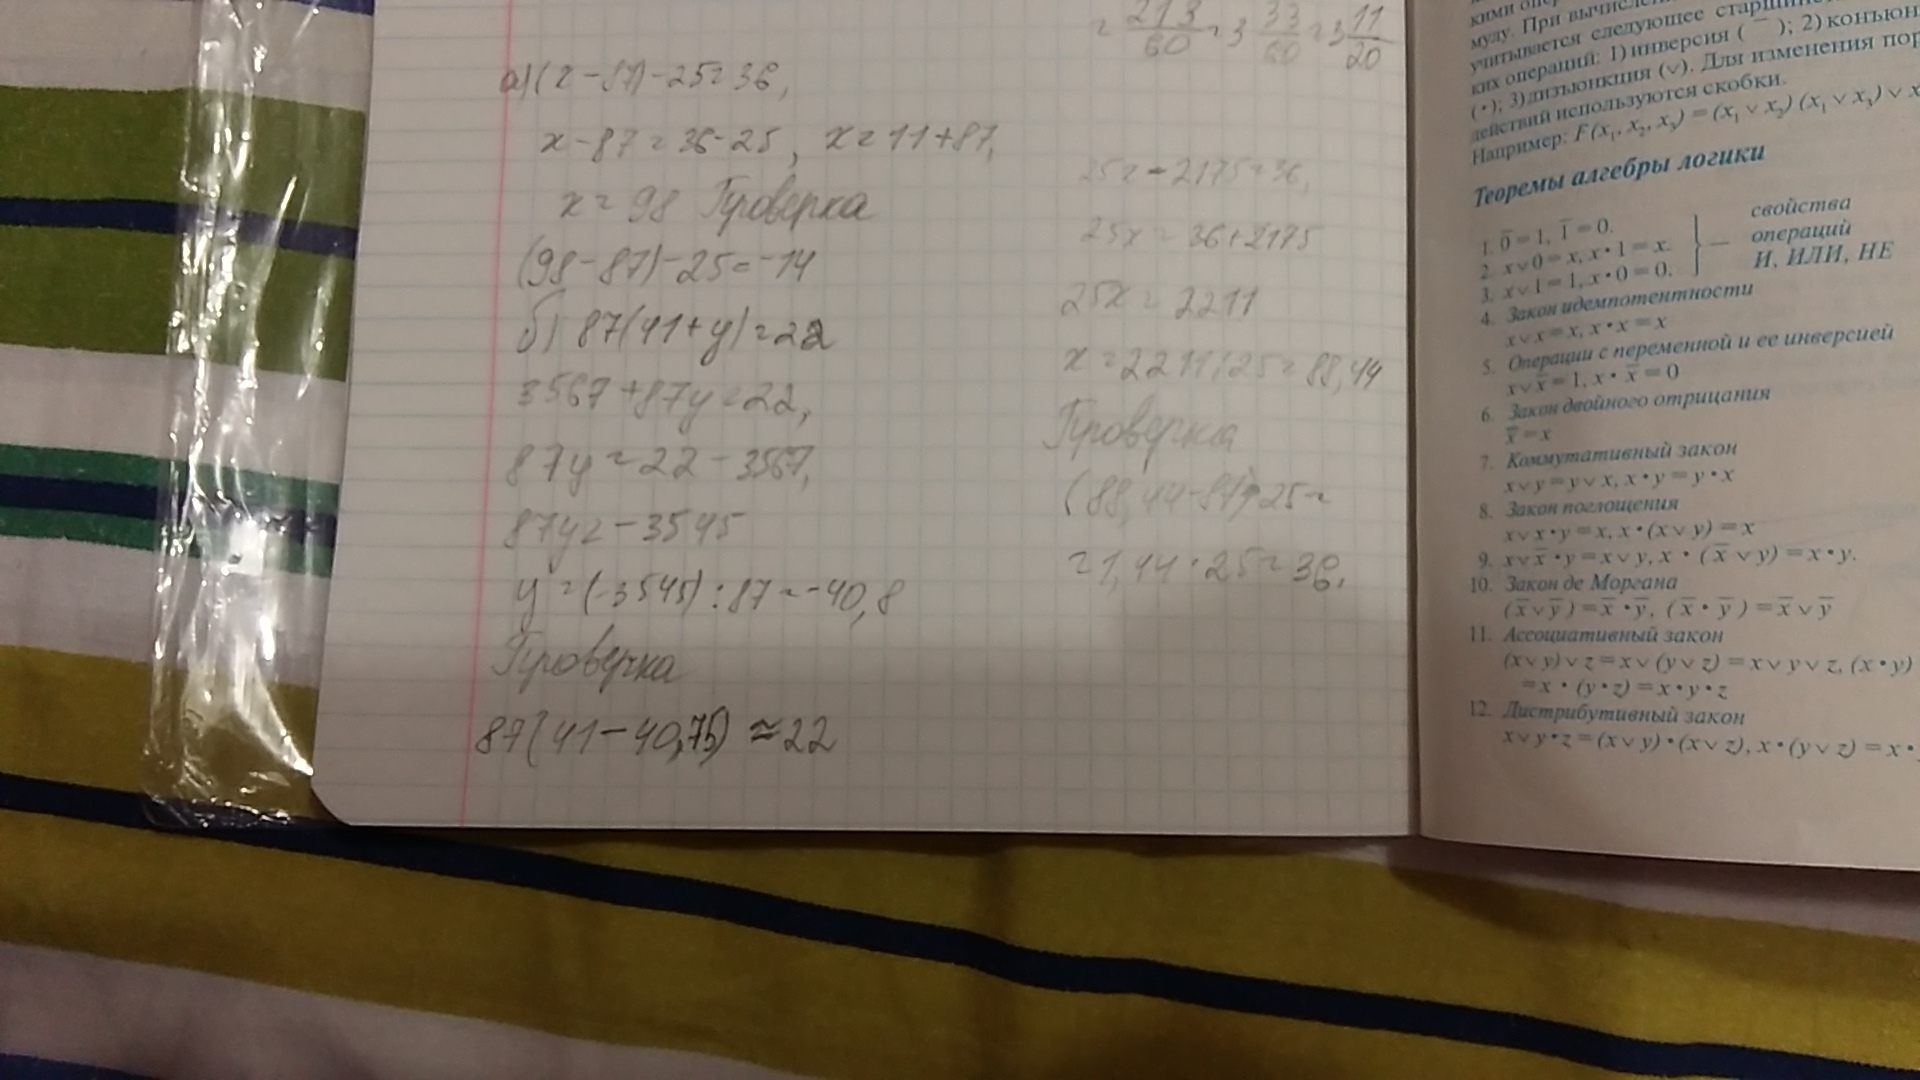 = 213/60 = 3 33/60 = 3 11/20
а) (x-87)-25=36,
x-87=36-25, x=11+87,
x=98 Проверка
(98-87)-25=-14
б) 87(41+y)=22
3567+87y=22,
87y=22-3567,
87y=-3545
y=(-3545):87=-40,8
Проверка
87(41-40,75)≈22
25x-2175=36,
25x=36+2175
25x=2211
x=2211:25=88,44
Проверка
(88,44-87)·25=
=1,44·25=36.
мулу. При вычислен
учитывается следующее старши
ких операций: 1) инверсия (‾); 2) конъюн
(•); 3) дизъюнкция (∨). Для изменения пор
действий используются скобки.
Например: F(x₁, x₂, x₃) = (x₁ ∨ x₂) (x₁ ∨ x₃) ∨ x
Теоремы алгебры логики
1. 0̅ = 1, 1̅ = 0.
2. x∨0 = x, x•1 = x.
3. x∨1 = 1, x•0 = 0.
— свойства операций И, ИЛИ, НЕ
4. Закон идемпотентности
x∨x = x, x•x = x
5. Операции с переменной и ее инверсией
x∨x̅ = 1, x• x̅ = 0
6. Закон двойного отрицания
x̿ = x
7. Коммутативный закон
x∨y = y∨x, x•y = y•x
8. Закон поглощения
x∨x•y = x, x•(x∨y) = x
9. x∨x̅•y = x∨y, x • (x̅∨y) = x•y.
10. Закон де Моргана
(x̅∨̅y̅) = x̅•y̅, (x̅•̅y̅) = x̅∨y̅
11. Ассоциативный закон
(x∨y)∨z = x∨(y∨z) = x∨y∨z, (x•y)
= x • (y•z) = x•y•z
12. Дистрибутивный закон
x∨y•z = (x∨y)•(x∨z), x•(y∨z) = x•